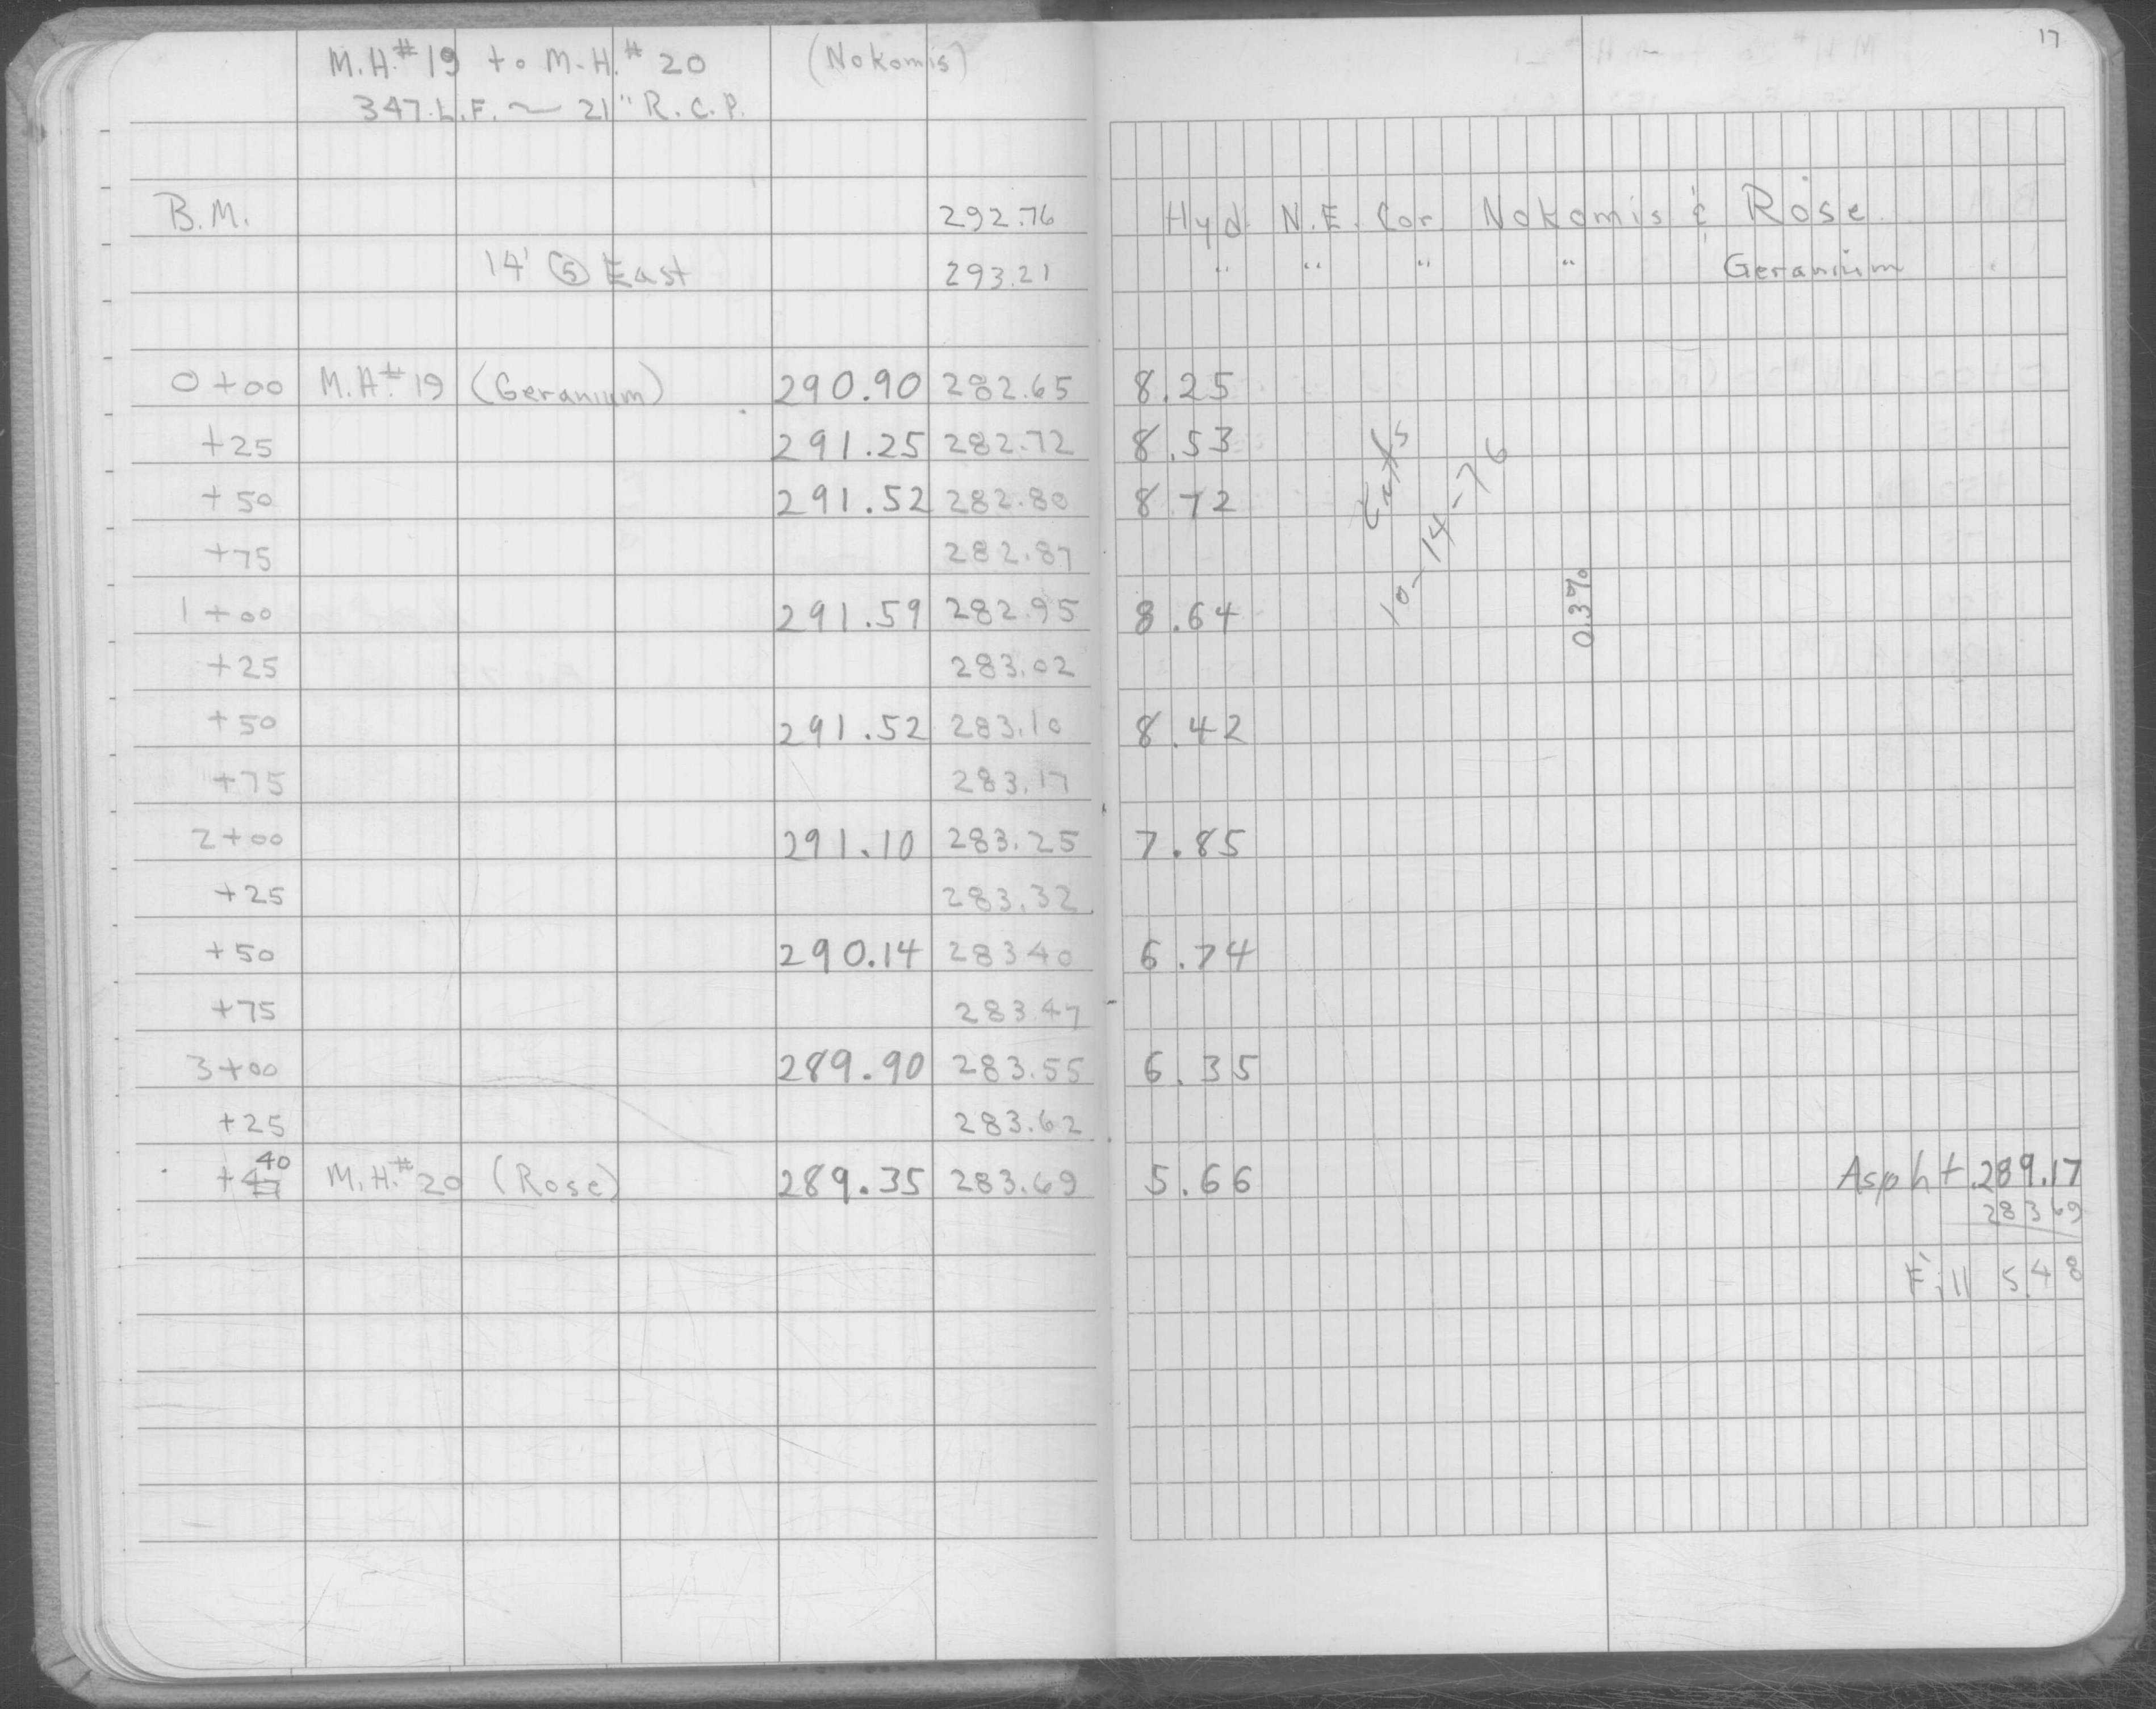 17
M.H.# 19 to M.H.# 20 (Nokomis)
347 L.F. ~ 21" R.C.P.
B.M. 292.76 Hyd. N.E. Cor. Nokomis & Rose
14' Ⓢ East 293.21 " " " " Geranium
0+00 M.H.# 19 (Geranium) 290.90 282.65 8.25
+25 291.25 282.72 8.53
+50 291.52 282.80 8.72
+75 282.87
1+00 291.59 282.95 8.64
+25 283.02
+50 291.52 283.10 8.42
+75 283.17
2+00 291.10 283.25 7.85
+25 283.32
+50 290.14 28340 6.74
+75 283.47
3+00 289.90 283.55 6.35
+25 283.62
+47 40 M.H.# 20 (Rose) 289.35 283.69 5.66 Aspht. 289.17
283 69
Fill 5.48
Cuts
10-14-76
0.3%